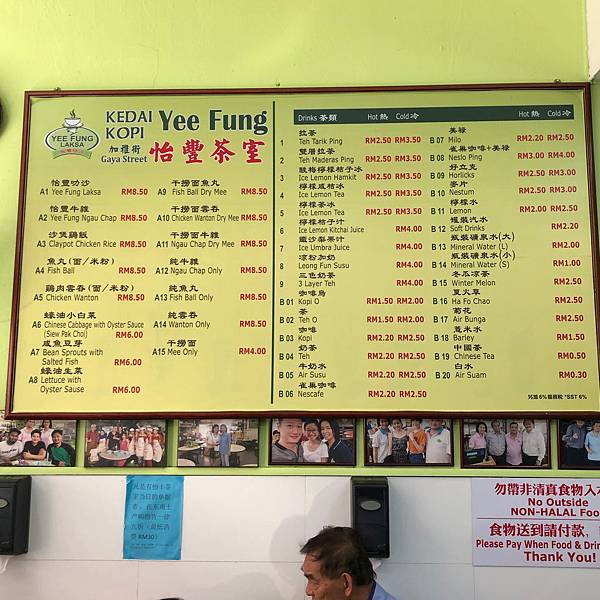 YEE FUNG
LAKSA
KEDAI
KOPI
Yee Fung
加雅街
Gaya Street
怡豐茶室
怡豐叻沙
A1 Yee Fung Laksa RM8.50
怡豐牛雜
A2 Yee Fung Ngau Chap RM8.50
沙煲鷄飯
A3 Claypot Chicken Rice RM8.50
魚丸(面/米粉)
A4 Fish Ball RM8.50
鷄肉雲吞(面/米粉)
A5 Chicken Wanton RM8.50
蠔油小白菜
A6 Chinese Cabbage with Oyster Sauce
(Siew Pak Choi) RM6.00
咸魚豆芽
A7 Bean Sprouts with
Salted Fish RM6.00
蠔油生菜
A8 Lettuce with
Oyster Sause RM6.00
干撈面魚丸
A9 Fish Ball Dry Mee RM8.50
干撈面雲吞
A10 Chicken Wanton Dry Mee RM8.50
干撈面牛雜
A11 Ngau Chap Dry Mee RM8.50
純牛雜
A12 Ngau Chap Only RM8.50
純魚丸
A13 Fish Ball Only RM8.50
純雲吞
A14 Wanton Only RM8.50
干撈面
A15 Mee Only RM4.00
Drinks 茶類 Hot 熱 Cold 冷 Hot 熱 Cold 冷
拉茶
1 Teh Tarik Ping RM2.50 RM3.50
雙層拉茶
2 Teh Maderas Ping RM2.50 RM3.50
酸梅檸檬桔子冰
3 Ice Lemon Hamkit RM2.50 RM3.50
檸檬咸桔冰
4 Ice Lemon Tea RM2.50 RM3.50
檸檬茶冰
5 Ice Lemon Tea RM2.50 RM3.50
檸檬桔子汁
6 Ice Lemon Kitchai Juice RM4.00
鐵沙梨果汁
7 Ice Umbra Juice RM4.00
凉粉加奶
8 Leong Fun Susu RM4.00
三色奶茶
9 3 Layer Teh RM4.00
咖啡烏
B 01 Kopi O RM1.50 RM2.00
茶
B 02 Teh O RM1.50 RM2.00
咖啡
B 03 Kopi RM2.20 RM2.50
奶茶
B 04 Teh RM2.20 RM2.50
牛奶水
B 05 Air Susu RM2.20 RM2.50
雀巢咖啡
B 06 Nescafe RM2.20 RM2.50
美祿
B 07 Milo RM2.20 RM2.50
雀巢咖啡+美祿
B 08 Neslo Ping RM3.00 RM4.00
好立克
B 09 Horlicks RM2.50 RM3.00
麥片
B 10 Nestum RM2.50 RM3.00
檸檬水
B 11 Lemon RM2.00 RM2.50
罐裝汽水
B 12 Soft Drinks RM2.20
瓶裝礦泉水(大)
B 13 Mineral Water (L) RM2.00
瓶裝礦泉水(小)
B 14 Mineral Water (S) RM1.00
冬瓜凉茶
B 15 Winter Melon RM2.50
夏火草
B 16 Ha Fo Chao RM2.50
菊花
B 17 Air Bunga RM2.50
薏米水
B 18 Barley RM1.50
中國茶
B 19 Chinese Tea RM0.50
白水
B 20 Air Suam RM0.30
另加 6%服務稅 *SST 6%
RM30)
勿帶非清真食物入
No Outside
NON-HALAL Foo
食物送到請付款,
Please Pay When Food & Drin
Thank You!